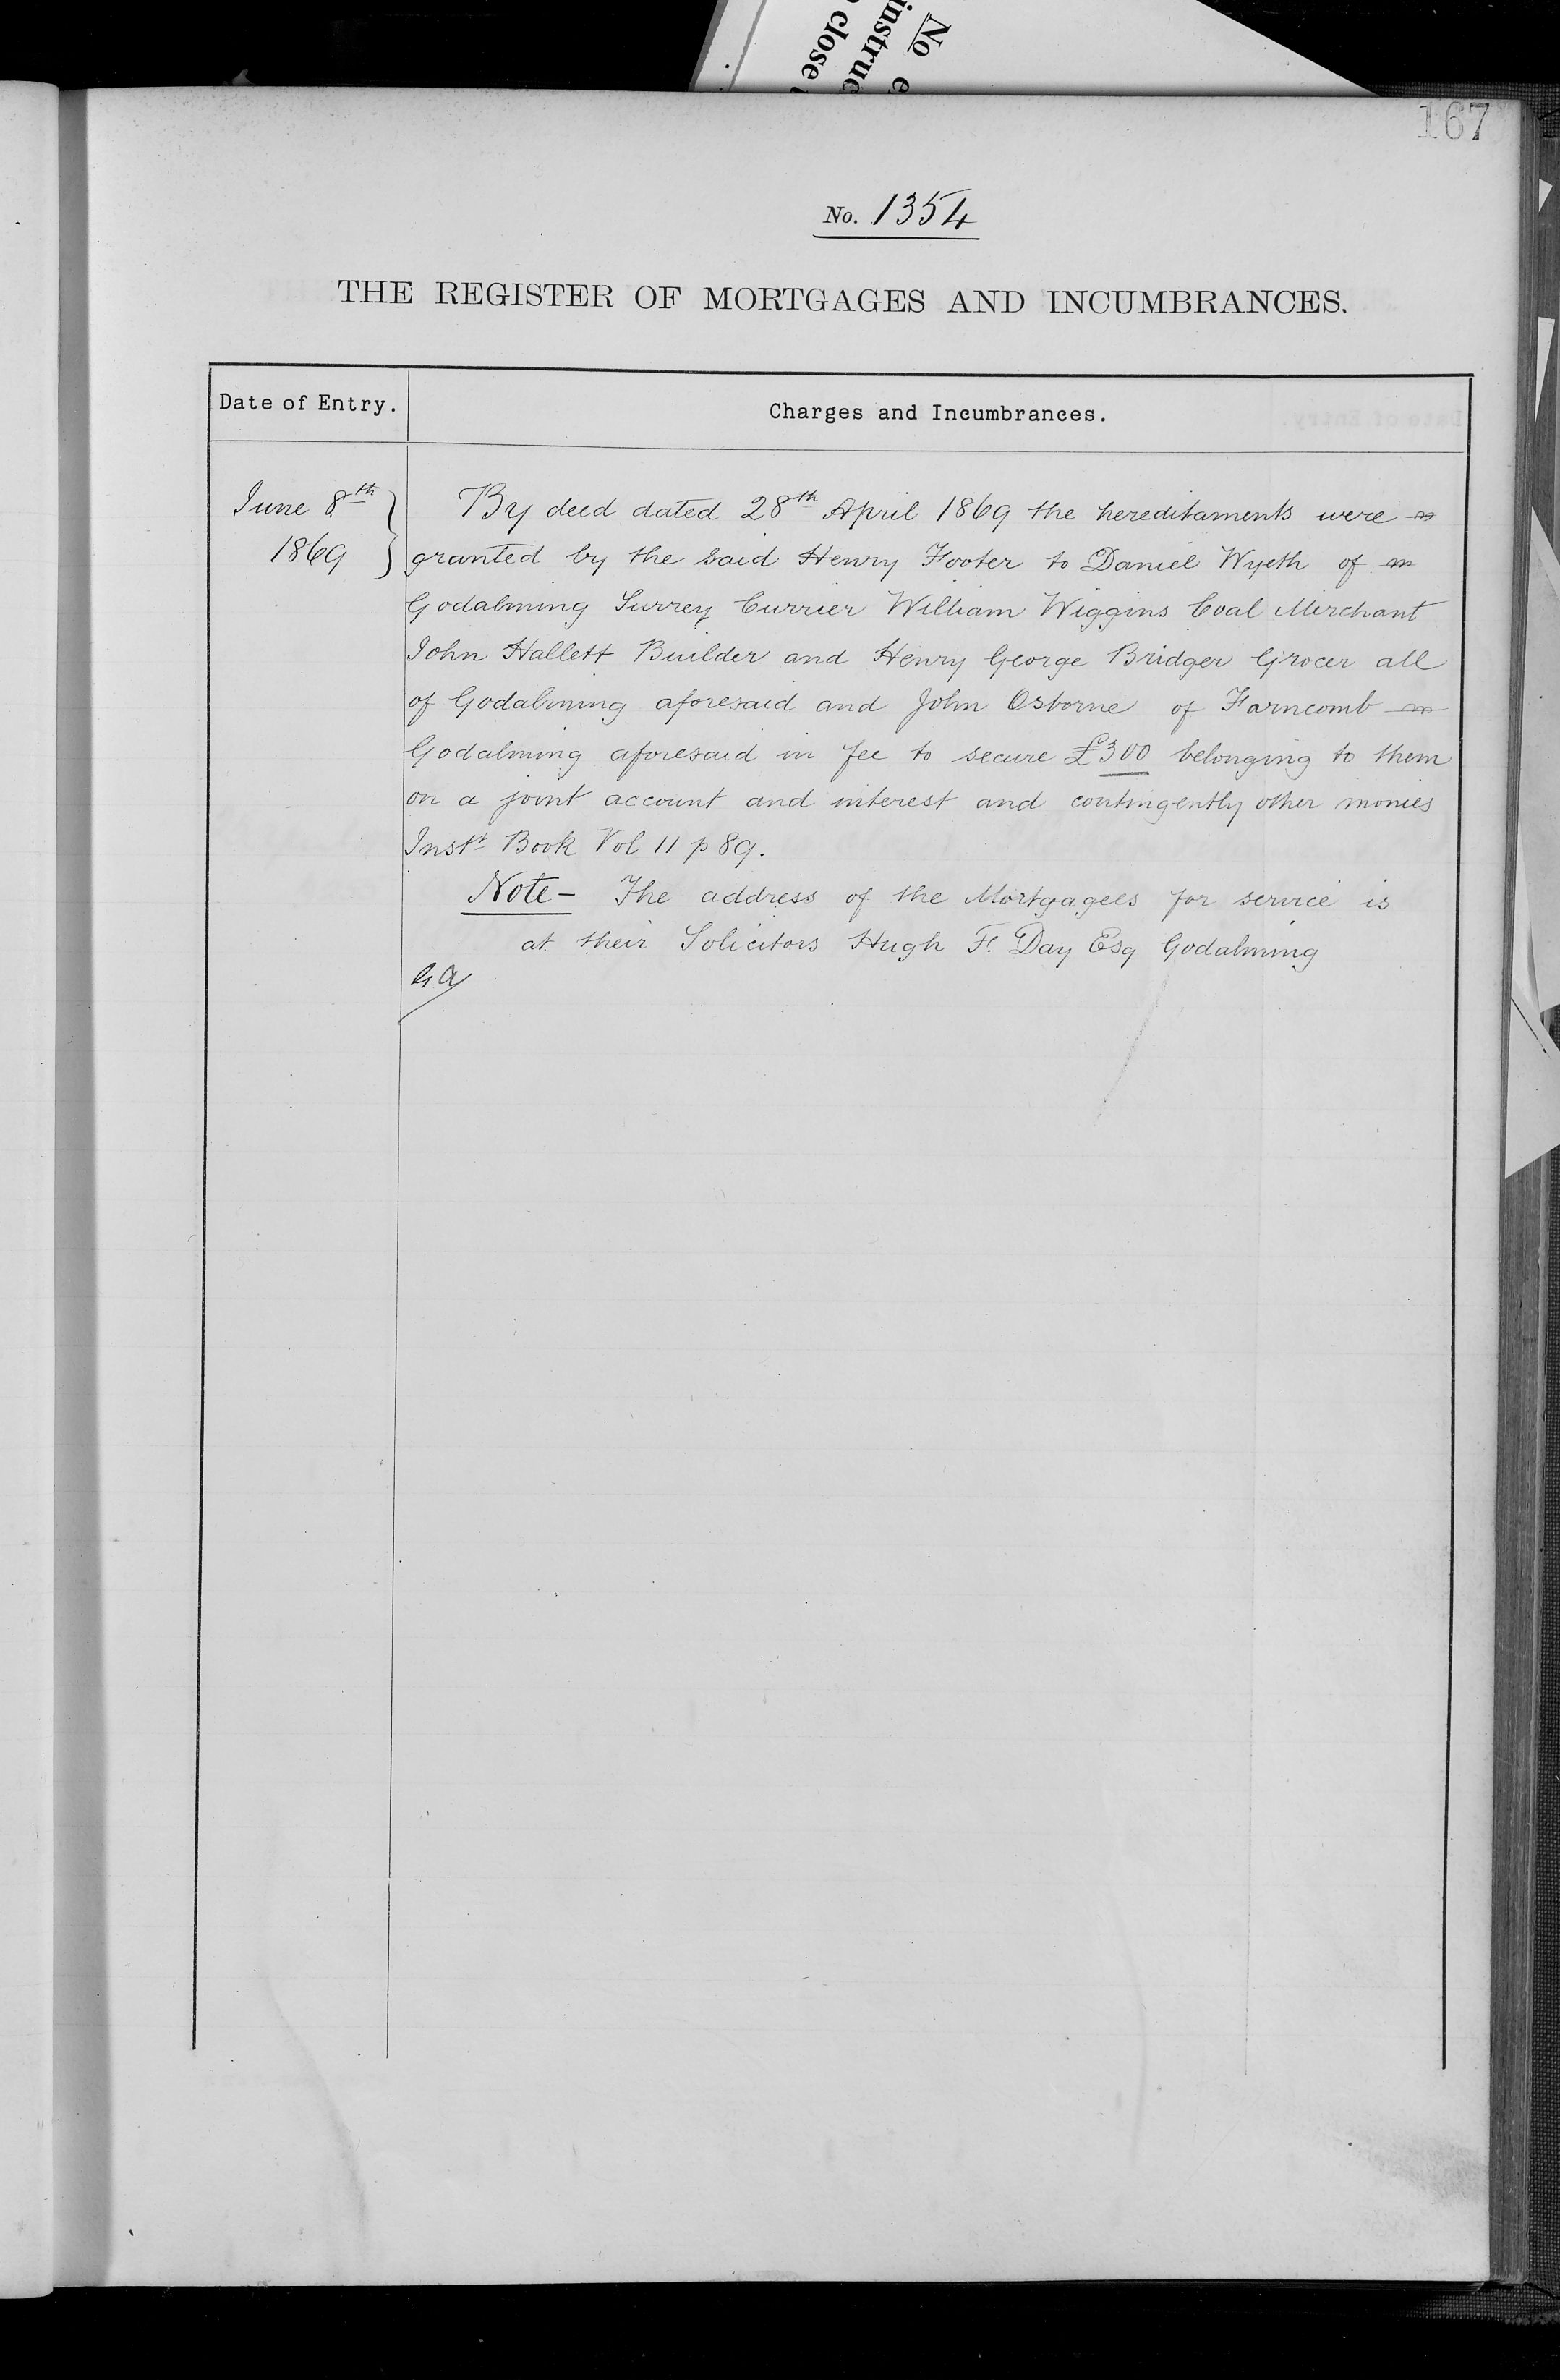 No
instruc
close
167
No. 1354
THE REGISTER OF MORTGAGES AND INCUMBRANCES.
Date of Entry.
Charges and Incumbrances.
June 8th
1869
By deed dated 28th April 1869 the hereditaments were
granted by the said Henry Footer to Daniel Wyeth of
Godalming Surrey Currier William Wiggins Coal Merchant
John Hallett Builder and Henry George Bridger Grocer all
of Godalming aforesaid and John Osborne of Farncomb
Godalming aforesaid in fee to secure £300 belonging to them
on a joint account and interest and contingently other monies
Instt Book Vol 11 p 89.
Note - The address of the Mortgagees for service is
at their Solicitors Hugh F. Day Esq Godalming